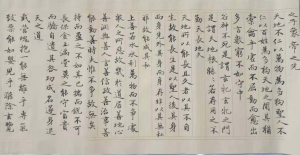 子象帝之先
天地不仁以萬物為芻狗聖人不
仁以百姓為芻狗天地之間其猶
橐籥乎虛而不屈動而愈出
多言數窮不如守中
谷神不死是謂玄牝玄牝之門
是謂天地根綿綿若存用之不
勤天長地久
天地所以能長且久者以其不自
生故能長生是以聖人後其身
而身先外其身而身存非以其無私
耶故能成其私
上善若水水善利萬物而不爭處
衆人之所惡故幾於道居善地心
善淵與善仁言善信政善治事善
能動善時夫唯不爭故無尤
持而盈之不如其已揣而銳不可
長保金玉滿堂莫之能守富貴
而驕自遺其咎功成名遂身退
天之道
載營魄抱一能無離乎專氣
致柔能如嬰兒乎滌除玄覽